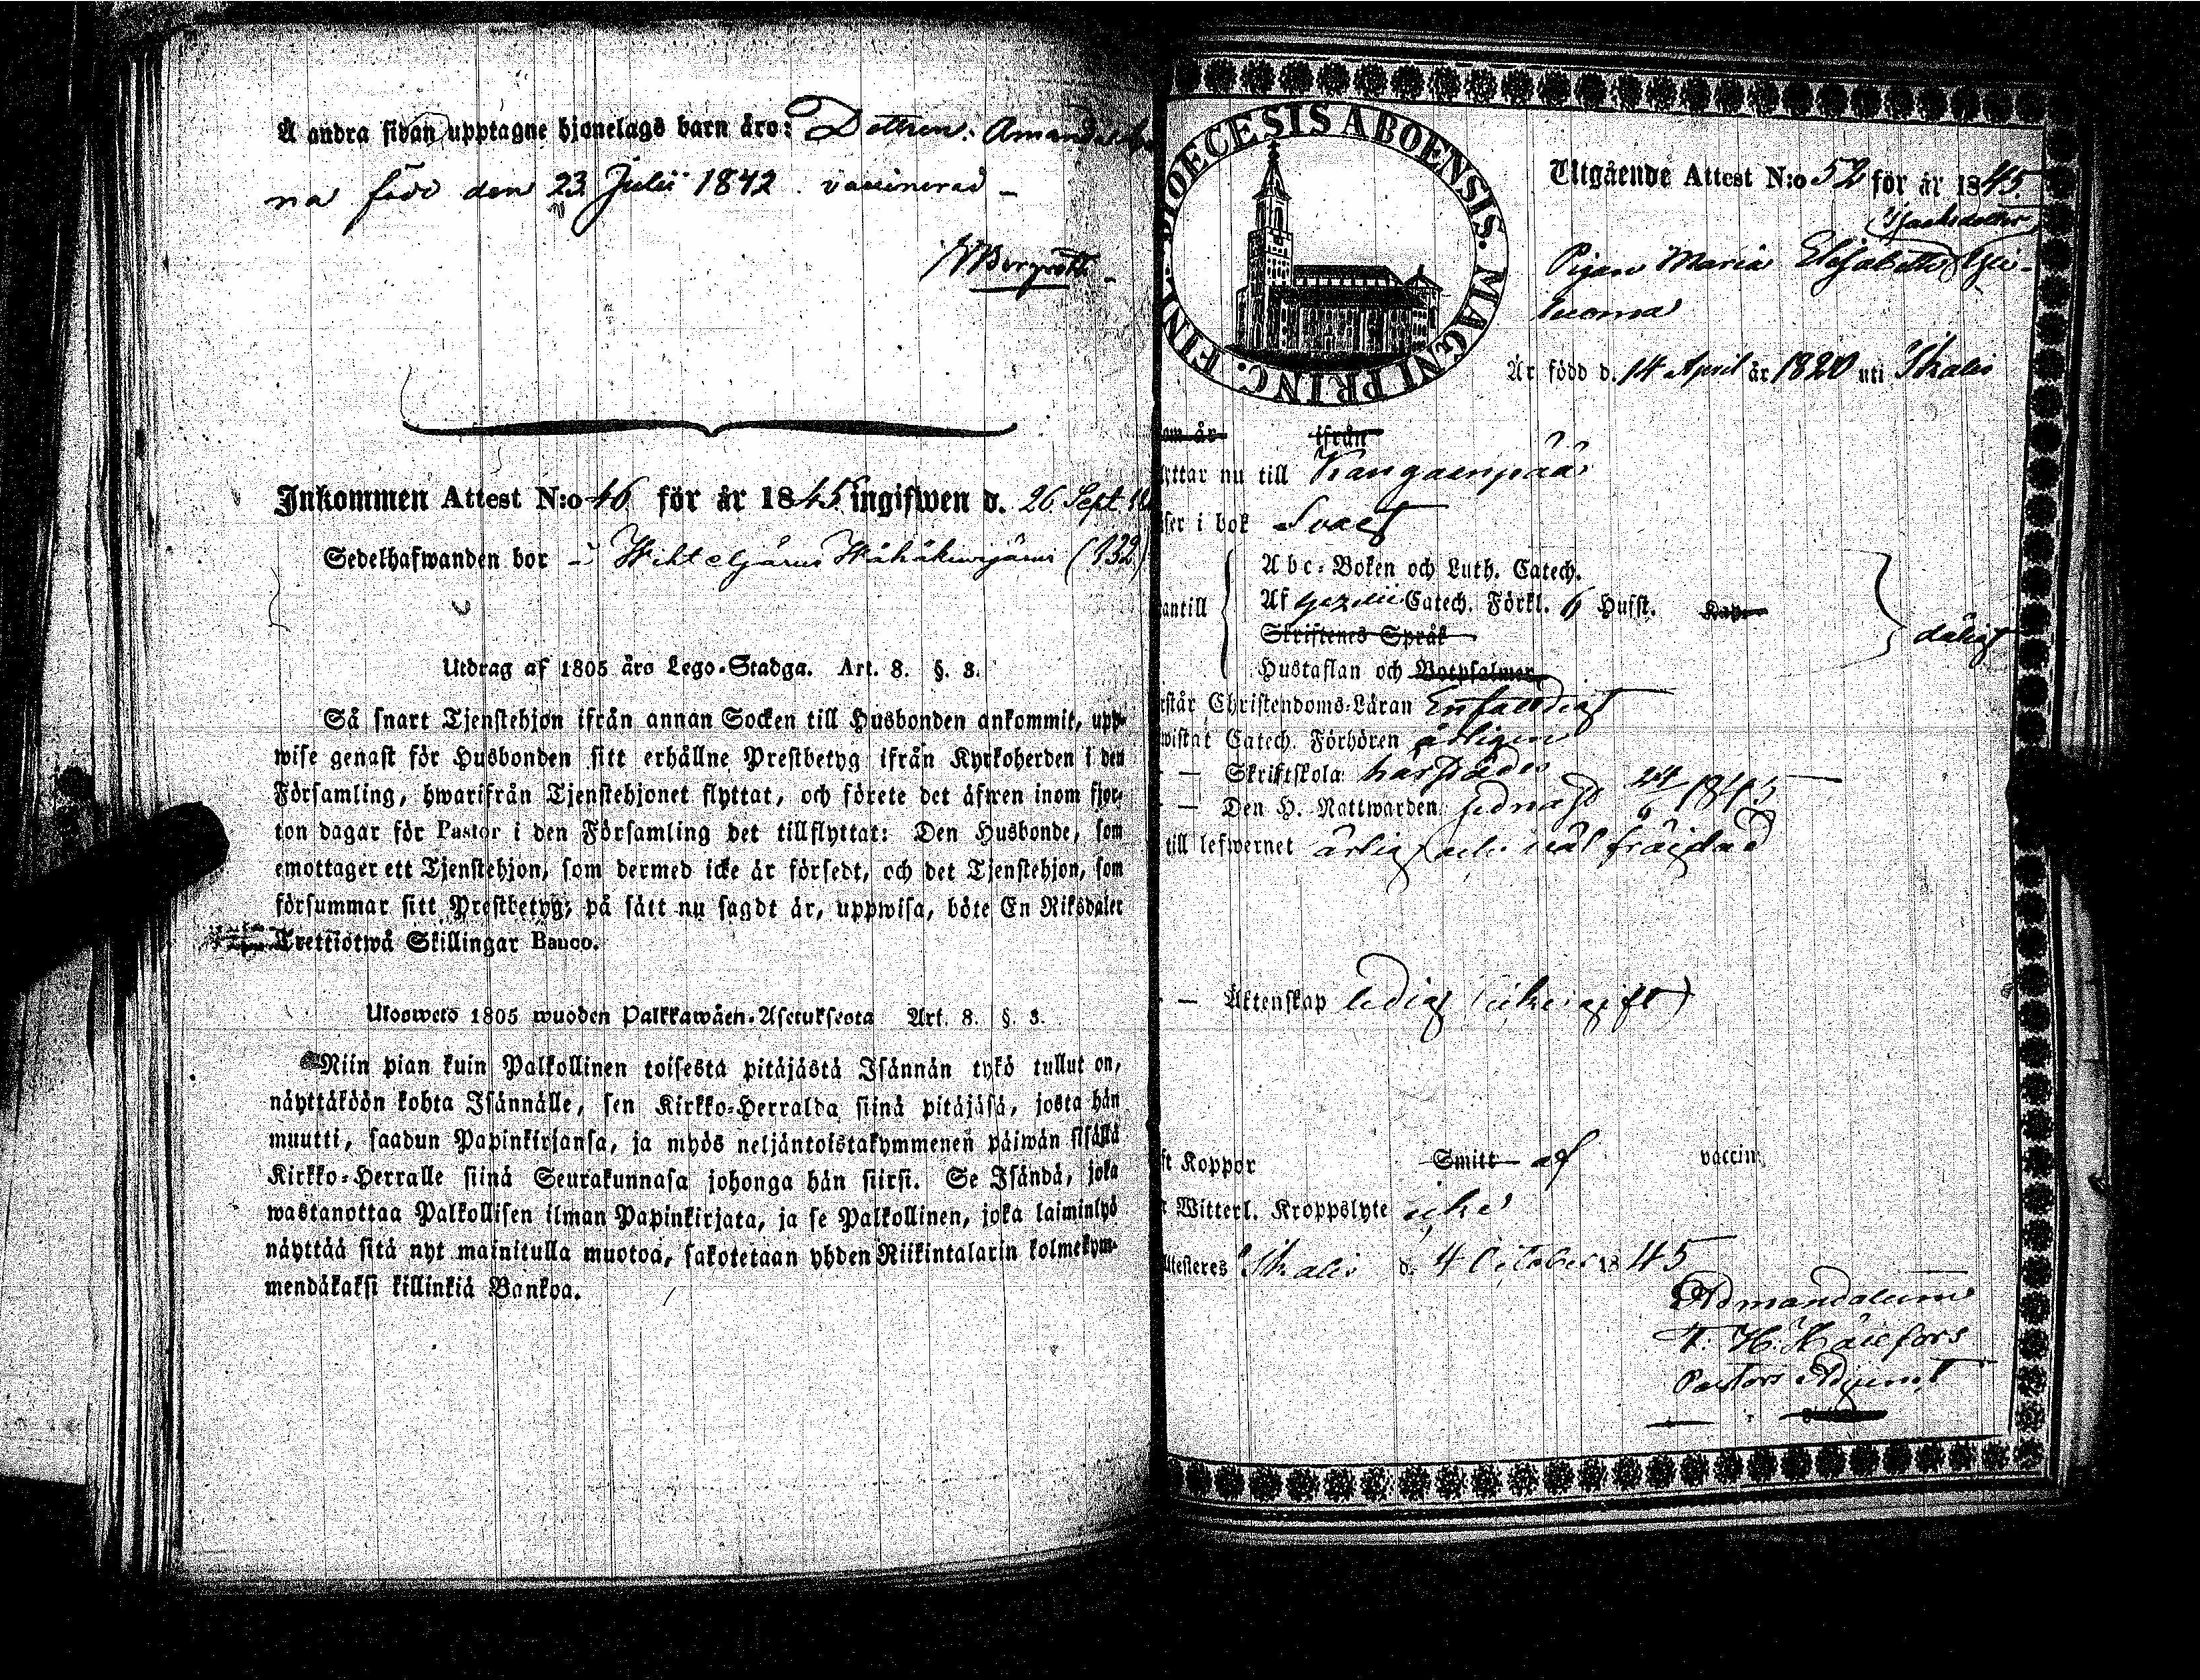 Å andra sidan upptagne hjonelags barn äro: Dottren: Amanda
na född den 23 Julii 1842. vaccinerad –
Inkommen Attest N:o 46 för år 1845 ingifwen d. 26 Sept.
Sedelhafwanden bor i (132)
Utdrag af 1805 års Lego-Stadga. Art. 8. §. 3.
Så snart Tjenstehjon ifrån annan Socken till Husbonden ankommit, upp-
wise genast för Husbonden sitt erhållne Prestbetyg ifrån Kyrkoherden i den
Församling, hwarifrån Tjenstehjonet flyttat, och förete det äfwen inom fjor-
ton dagar för Pastor i den Församling det tillflyttat: Den Husbonde, som
emottager ett Tjenstehjon, som dermed icke är försedt, och det Tjenstehjon, som
försummar sitt Prestbetyg, på sätt nu sagdt är, uppwisa, böte En Riksdaler
Trettiotwå Skillingar Banco.
Uloswets 1805 wuoden Palkkawäen-Asetuksesta Art. 8. §. 3.
Niin pian kuin Palkollinen toisesta pitäjästä Isännän tykö tullut on,
näyttäköön kohta Isännälle, sen Kirkko-Herralda siinä pitäjäsä, josta hän
muutti, saadun Papinkirjansa, ja myös neljäntoistakymmenen päiwän sisällä
Kirkko-Herralle siinä Seurakunnasa johonga hän siirsi. Se Isändä, joka
wastanottaa Palkollisen ilman Papinkirjata, ja se Palkollinen, joka laiminlyö
näyttää sitä nyt mainitulla muotoa, sakotetaan yhden Riikintalarin kolmekym-
mendäkaksi killinkiä Bankoa.
DIOECESIS ABOENSIS. MAGNI PRINC. FINL.
Utgående Attest N:o 52 för år 1845
Isaksdotter
Pigan Maria Elisabeth
Är född d. 14 April år 1820 uti Ikalis
om är ifrån
yttar nu till Kangaenpää
ser i bok Svagt
Abc-Boken och Luth. Catech.
antill Af Catech. Förkl. 6 Hufst. Kap.
Skriftenes Språk
Hustaflan och Botpsalmer
dåligt
rstår Christendoms-Läran Enfaldigt
wistat Catech. Förhören årligen
— Skriftskola härstädes
— Den H. Nattwarden sednast 24/6 1845
till lefwernet ärlig och väl frägdad
— Äktenskap ledig (icke gift)
ft Koppor Smitt af vaccin.
Witterl. Kroppslyte icke
Attesteres Ikalis d. 4 October 1845
Ad mandatum
Pastors Adjunct